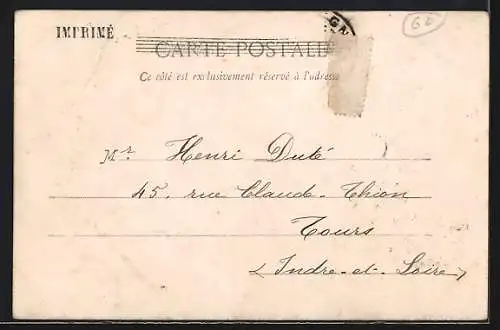 IMPRIMÉ
CARTE POSTALE
Ce côté est exclusivement réservé à l'adresse
64
Mr Henri Duté
45. rue Claude-Thion
Tours
(Indre-et-Loire)